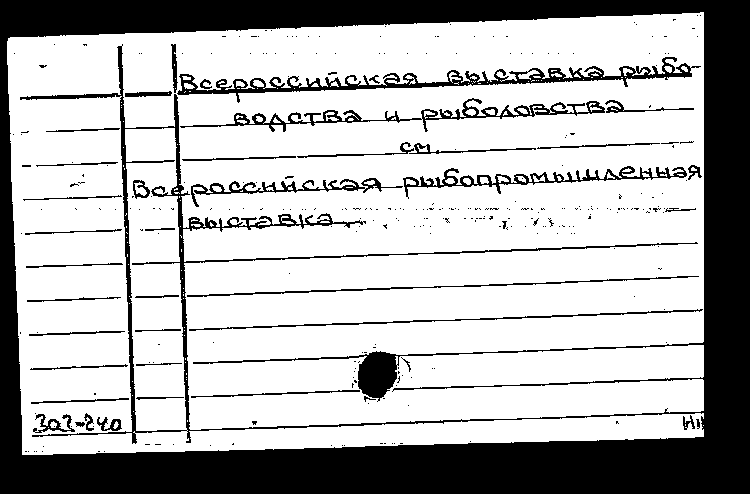 Всероссийская выставка рыбо-
водства и рыболовства
см.
Всероссийская рыбопромышленная
выставка.